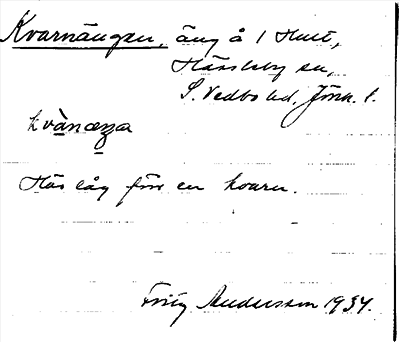 Kvarnängen, äng å 1 Hult,
Hässleby sn,
S. Vedbo hd, Jönk. l.
kvànæŋa
Här låg förr en kvarn.
Fritz Andersson 1934.